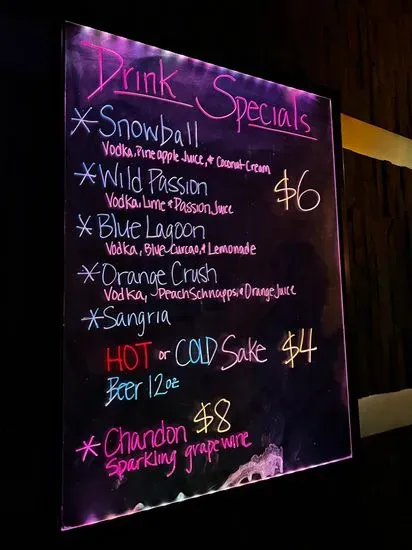 Drink Specials
*Snowball
Vodka, Pineapple Juice, & Coconut Cream
*Wild Passion
$6
Vodka, Lime & Passion Juice
*Blue Lagoon
Vodka, Blue Curcao, & Lemonade
*Orange Crush
Vodka, Peach Schnapps, & Orange Juice
*Sangria
HOT or COLD Sake $4
Beer 12oz
*Chandon $8
Sparkling grape wine